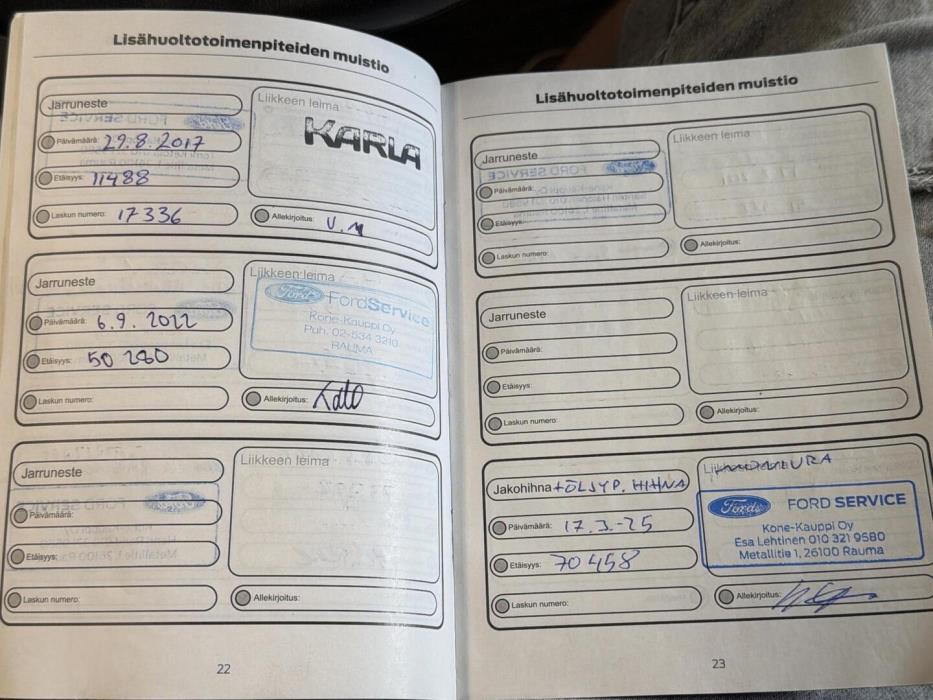 Lisähuoltotoimenpiteiden muistio
Jarruneste
Liikkeen leima
KARLA
Päivämäärä: 29.8.2017
Etäisyys: 11488
Laskun numero: 17336
Allekirjoitus: V.M
Jarruneste
Liikkeen leima
Ford FordService
Kone-Kauppi Oy
Puh. 02-534 3210
RAUMA
Päivämäärä: 6.9. 2022
Etäisyys: 50 280
Laskun numero:
Allekirjoitus:
Jarruneste
Liikkeen leima
Päivämäärä:
Etäisyys:
Laskun numero:
Allekirjoitus:
22
Lisähuoltotoimenpiteiden muistio
Jarruneste
Liikkeen leima
FORD SERVICE
Päivämäärä:
Etäisyys:
Laskun numero:
Allekirjoitus:
Jarruneste
Liikkeen leima
Päivämäärä:
Etäisyys:
Laskun numero:
Allekirjoitus:
Jakohihna + ÖLJYP. HIHNA
Ford FORD SERVICE
Kone-Kauppi Oy
Esa Lehtinen 010 321 9580
Metallitie 1, 26100 Rauma
Päivämäärä: 17.3.-25
Etäisyys: 70458
Laskun numero:
Allekirjoitus:
23